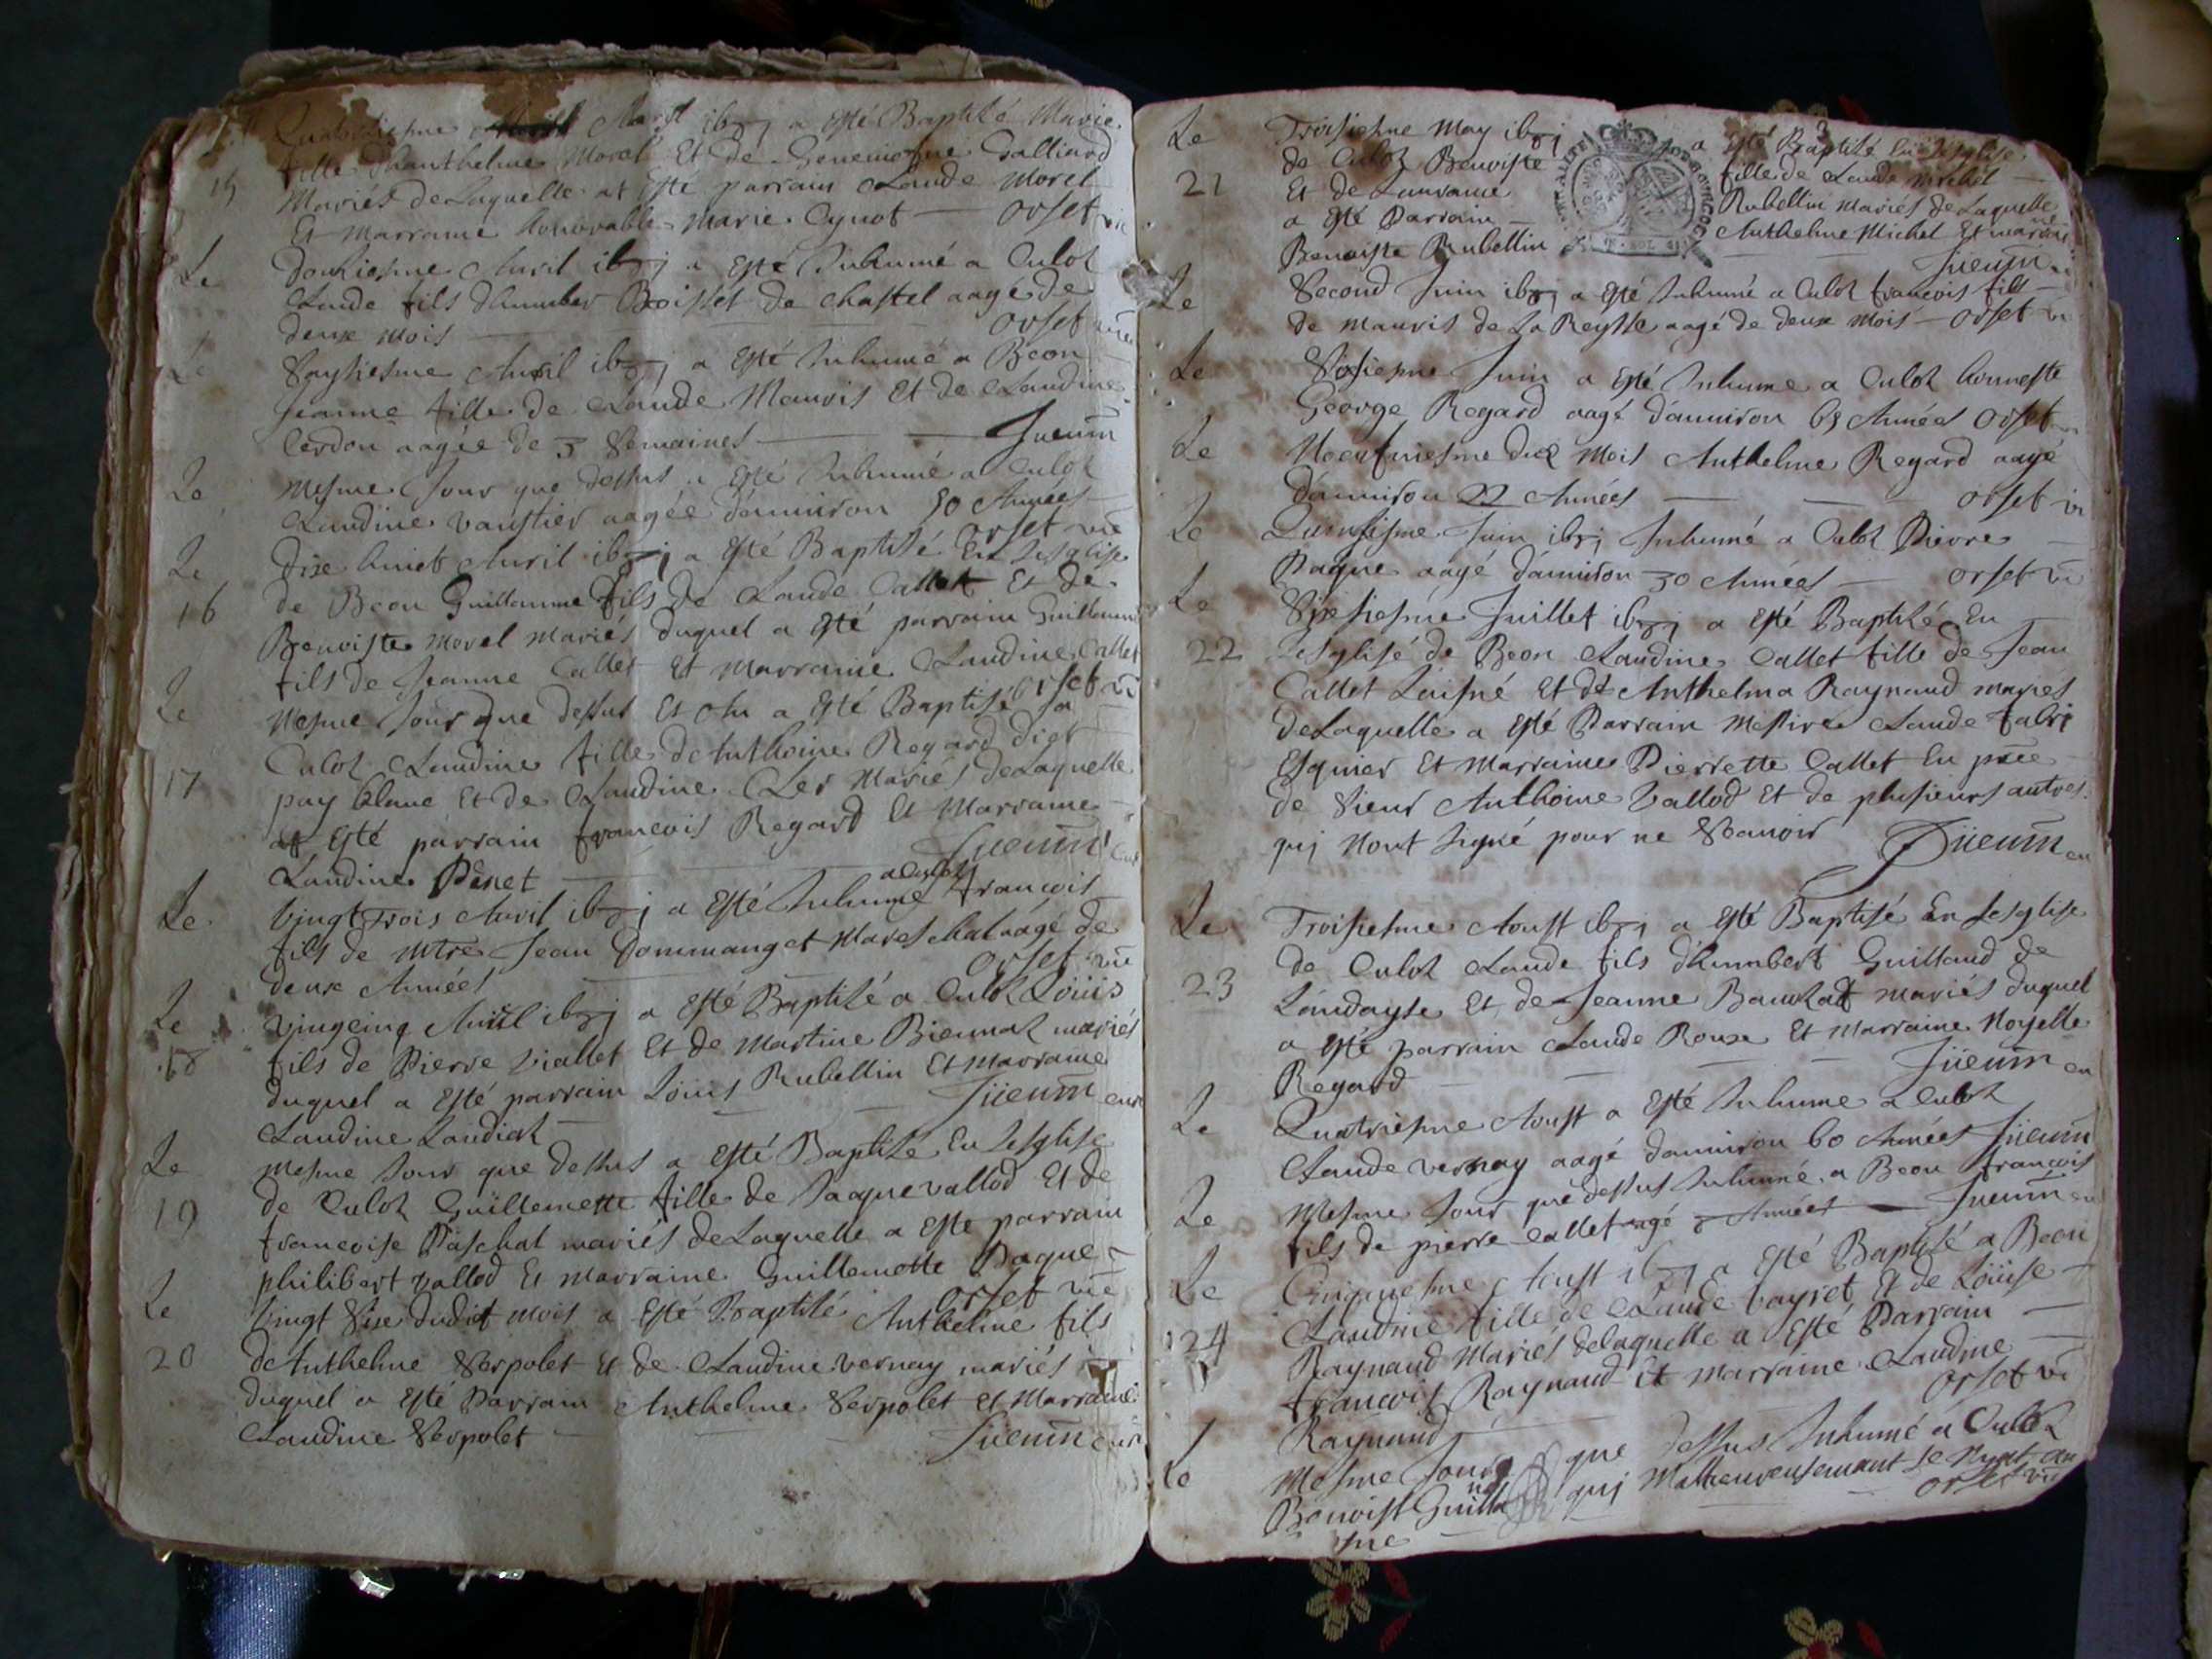 Quatorziesme Avril ibgj a esté Baptisé Marie
15
fille d'Hanthelme Morel Et de Genevieve Galliard
Mariés de Laquelle at esté parrain Claude Morel
Et Marraine honnorable Marie Cynot — Orset vic
Le
Avril ibgj a esté Inhumé a Culoz
Claude fils d'humber Boisset de chastel aagé de
deux mois — Orset
Le
Saysiesme Avril ibgj a esté Inhumé a Beon
Jeanne fille de Claude Mauris Et de Claudine
Cerdon aagée de 3 Semaines —
Le
Mesme Jour que dessus a esté Inhumé a Culoz
Claudine vaustier aagée d'anviron 50 Années
Orset vic
Le
dixe huict Avril ibgj a esté Baptisé En lesglise
16
de Beon Guillaume fils de Claude Callet Et de
Benoiste Morel Mariés duquel a esté parrain Guillaume
fils de Jeanne Callet Et Marraine Claudine Callet
Orset vic
Le
Mesme Jour que dessus Et an a esté Baptisé a
17
Culoz Claudine fille de Anthoine Regard dict
pay blanc Et de Claudine Cler Mariés de Laquelle
at Esté parrain francois Regard Et Marraine
Claudine Penet —
Le
vingt Trois Avril ibgj a esté Inhumé a Culoz francois
fils de mtre Jean Dommanget Mareschal aagé de
deux Années — Orset vic
Le
vingcinq Avril ibgj a esté Baptisé a Culoz Loüis
18
fils de Pierre Viallet Et de Martine Biennaz mariés
duquel a esté parrain Loüis Rubellin Et Marraine
Claudine Landiaz —
Le
Mesme Jour que dessus a esté Baptisé En lesglise
19
de Culoz Guillemette fille de Jaque vallod Et de
francoise Paschal mariés de Laquelle a este parrain
philibert vallod Et Marraine Guillemette Paque
Orset vic
Le
vingt Sixe dudict mois a esté Baptisé Anthelme fils
20
de Anthelme Serpolet Et de Claudine vernay mariés
duquel a esté Parrain Anthelme Serpolet et Marraine
Claudine Serpolet —
Le
Troisiesme May ibgj a esté Baptisé En lesglise
21
de Culoz Benoiste fille de Claude Michel
Et de Laurance Rubellin Mariés de Laquelle
a esté Parrain — Anthelme Michel Et marraine
Benoiste Rubellin
Le
Second Juin ibgj a esté Inhumé a Culoz francois fils
de Mauris de La Reysse aagé de deux mois — Orset vi
Le
Sixiesme Juin a esté Inhume a Culoz honneste
George Regard aagé d'anviron 65 Années Orset
Le
Noeufviesme dict Mois Anthelme Regard aagé
d'anviron 22 Années — Orset vi
Le
Quinsiesme Juin ibgj Inhumé a Culoz Pierre
Paque aagé d'anviron 30 Années — Orset vi
Le
Sixiesme Juillet ibgj a esté Baptisé En
22
lesglise de Beon Claudine Callet fille de Jean
Callet Laisné Et de Anthelma Raynaud mariés
de Laquelle a esté Parrain Messire Claude fabri
Esquier Et Marraine Pierrette Callet En pnce
de Sieur Anthoine Vallod Et de plusieurs autres
qui n'ont signé pour ne Scavoir
Le
Troisiesme Aoust ibgj a esté Baptisé En lesglise
23
de Culoz Claude fils d'humbert Guilland de
Landayse Et de Jeanne Bauchat mariés duquel
a esté parrain Claude Roux Et Marraine Noyelle
Regard
Le
Quatriesme Aoust a esté Inhume a Culoz
Claude vernay aagé d'anviron 60 Années
Le
Mesme Jour que dessus Inhumé a Beon francois
fils de pierre Callet agé Années —
Le
Cinquiesme Aoust ibgj a esté Baptisé a Beon
24
Claudine fille de Claude Vayret Et de Loüise
Raynaud Mariés de laquelle a esté Parrain
francois Raynaud Et marraine Claudine
Raynaud — Orset vi
Le
Mesme Jour que dessus Inhumé a Culoz
Benoist qui Malheureusement se
Orset vic